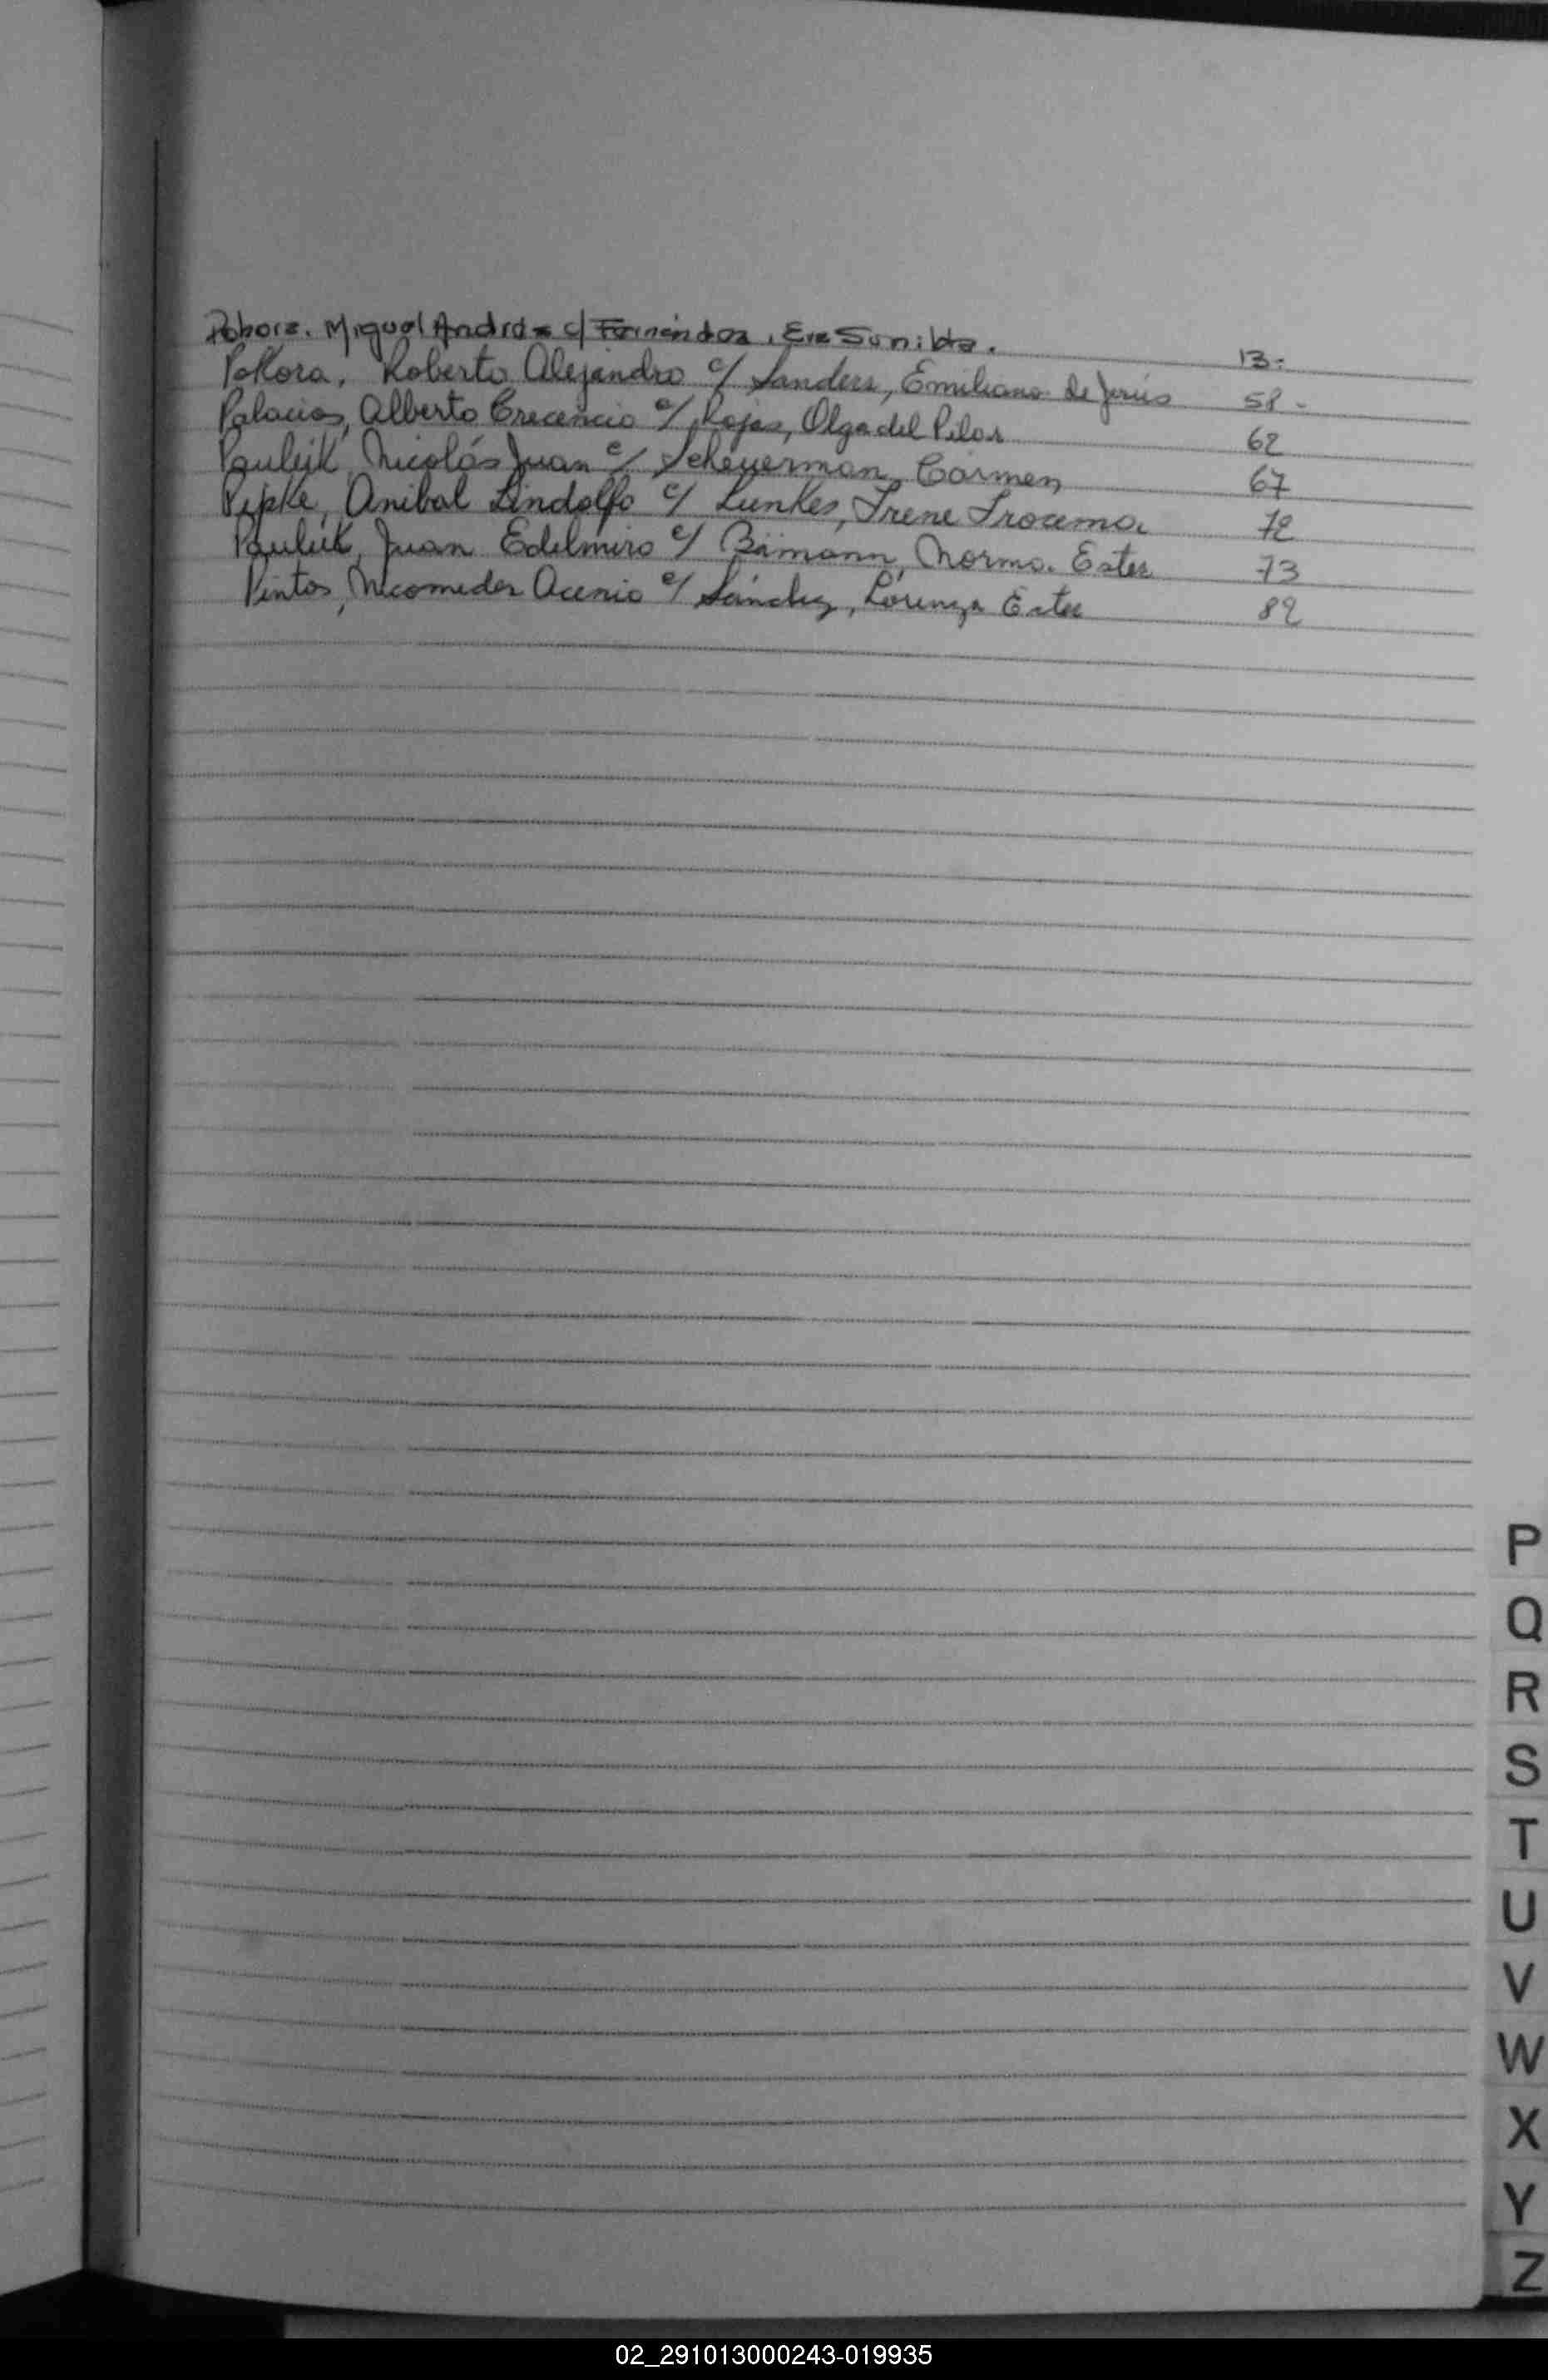 Miguel Andrés c/ Fernández, Eva Sunilda. 13.-
Pokora, Roberto Alejandro c/ Sanders, Emiliana de Jesús 58 -
Palacios, Alberto Crecencio c/ Rojas, Olga del Pilar 62
Pauluk, Nicolás Juan c/ Scheuerman, Carmen 67
Pipke, Anibal Lindolfo c/ Lunkes, Irene 72
Pauluk, Juan Edelmiro c/ Norma Ester 73
Pintos, Nicomedes Acenio c/ Sánchez, Lorenza Ester 82
P
Q
R
S
T
U
V
W
X
Y
Z
02_291013000243-019935